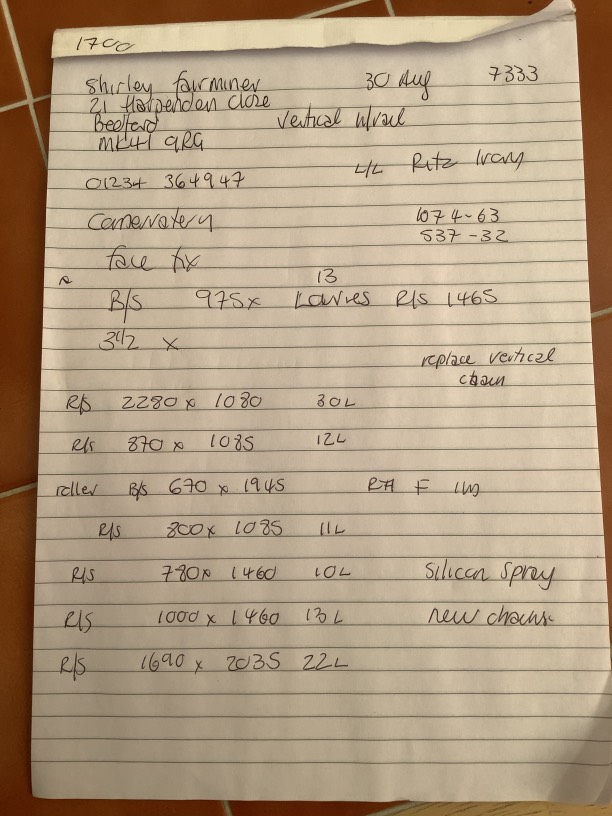 1700
Shirley fairminer 30 Aug 7333
21 Harpenden close
Bedford vertical w/rail
MK41 9RG
L/L Ritz Ivory
01234 364947
Conservatory 1074-63
537-32
face fix
13
B/S 975x Louvres R/S 1465
3 1/2 x
replace vertical
chain
R/S 2280 x 1080 30L
R/S 870 x 1085 12L
roller B/S 670 x 1945 RH F 1m
R/S 800x 1085 11L
R/S 780x 1460 10L Silicon Spray
R/S 1000 x 1460 13L new chains
R/S 1690 x 2035 22L